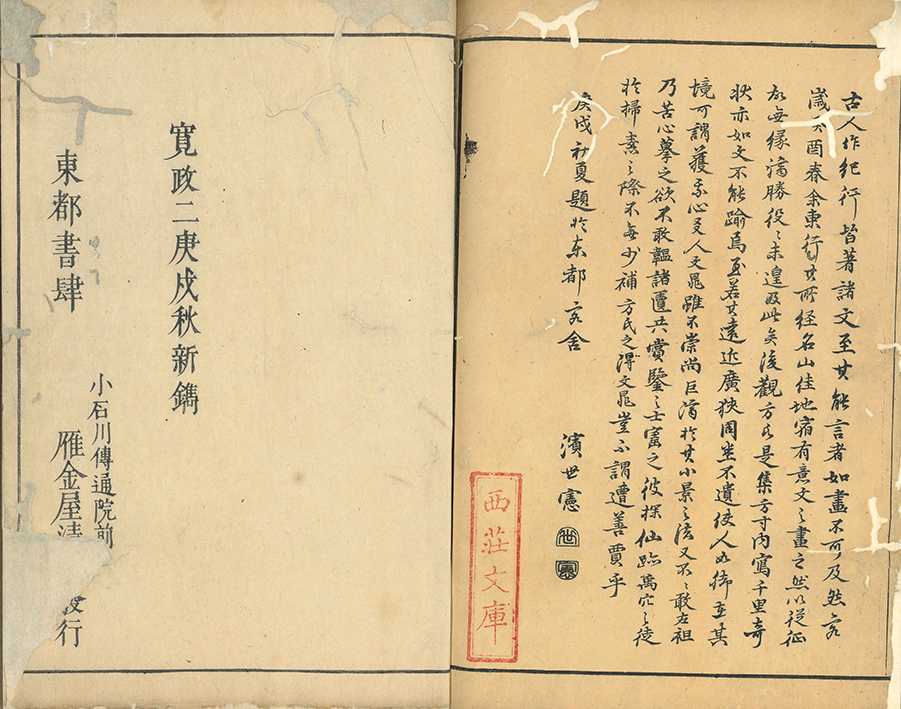 古人作紀行皆著諸文至其能言者如畫不可及然
歲 酉春余東行其所经名山佳地宿有意文之畫之然以從征
無緣 勝役之未遑及此矣後觀方氏是集方寸内寫千里奇
状亦如文不能踰焉至若其遠近廣狭周 不遺使人如 在其
境可謂獲我心矣人文晁雖不崇尚巨 於其小景之法又不敢左袒
乃苦心摹之欲不敢韞諸匱共賞鑒之士富之彼探仙跡萬穴之徒
於掃素之際不無少補方氏之得文晁豈不謂遭善賈乎
庚戌初夏題於东都客舍
濱世憲
西荘文庫
寛政二庚戌秋新鐫
東都書肆
小石川傳通院前
雁金屋清 行